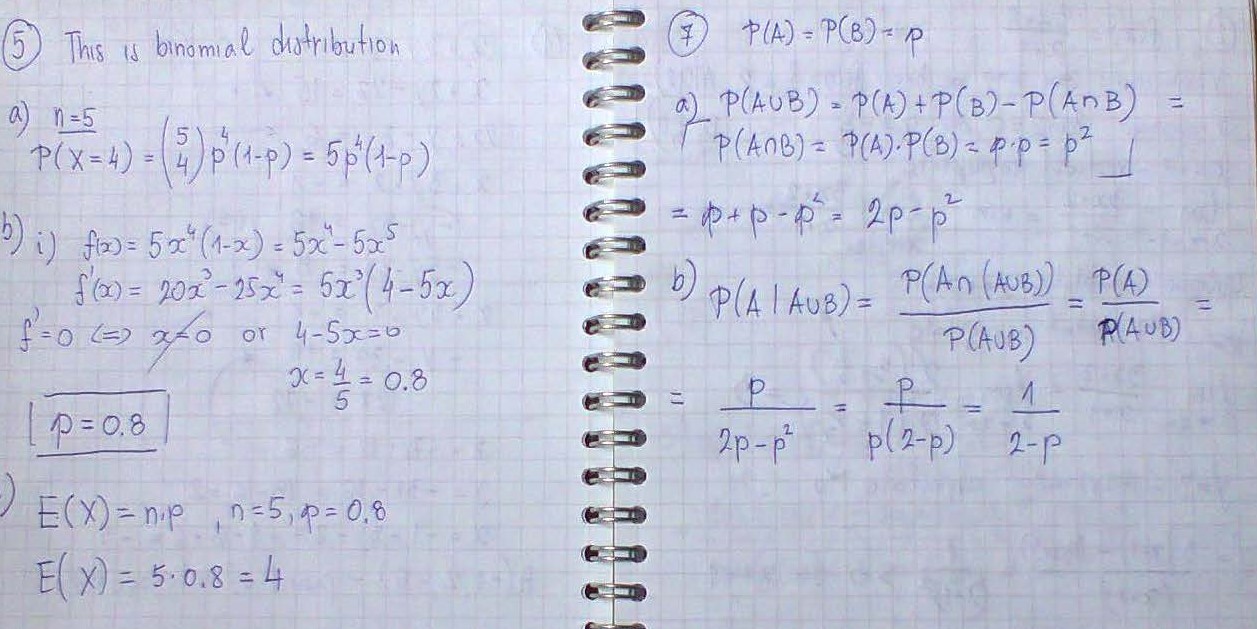 5 This is binomial distribution
a) n=5
P(X=4) = (5 4) p⁴(1-p) = 5p⁴(1-p)
b) i) f(x) = 5x⁴(1-x) = 5x⁴ - 5x⁵
f'(x) = 20x³ - 25x⁴ = 5x³(4-5x)
f'=0 <=> x=0 or 4-5x=0
x = 4/5 = 0.8
p=0.8
) E(X) = n.p , n=5, p=0.8
E(X) = 5·0.8 = 4
7 P(A) = P(B) = p
a) P(A∪B) = P(A) + P(B) - P(A∩B) =
P(A∩B) = P(A)·P(B) = p·p = p²
= p+p-p² = 2p-p²
b) P(A|A∪B) = P(A∩(A∪B))/P(A∪B) = P(A)/P(A∪B) =
= p/(2p-p²) = p/(p(2-p)) = 1/(2-p)